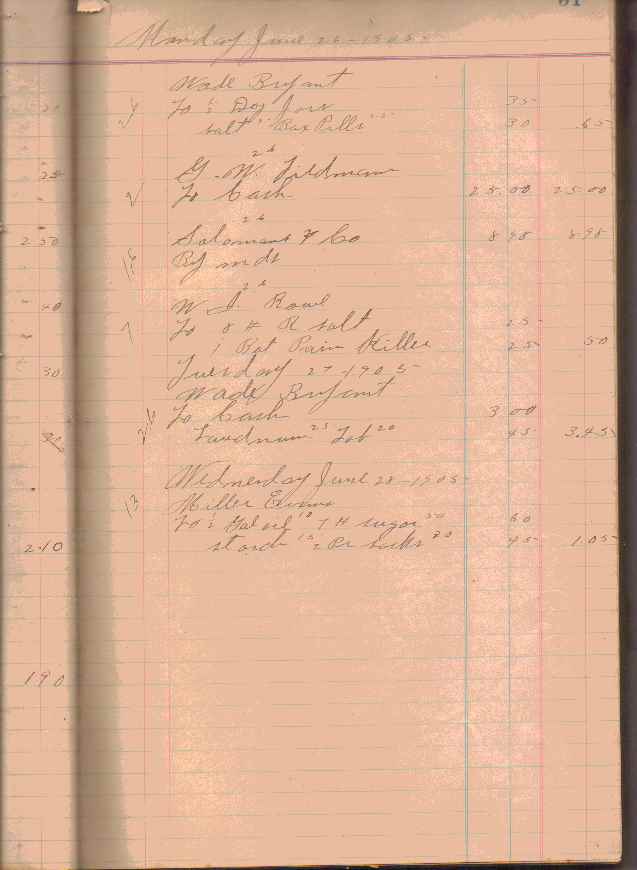 61
Monday June 26-1905-
Wade Bryant
20
4 To ½ Doz Jars 35
salt 15 Box Pills 15 30 .65
26
G. W.
25 2 To Cash 25.00 25 00
26
2 50 Salomans & Co 8 98 8.98
By mds
26
40 W. I. Rowe
7 To 8 # R salt 25
1 Bot Pain Killer 25 50
30 Tuesday 27-1905-
Wade Bryant
To Cash 3 00
Laudnum 25 Tob 20 45 3.45
Wednesday June 28-1905-
13 Miller Evans
To 1 Gal oil 10 7 # sugar 50 60
2.10 starch 15 2 Pr socks 30 45 1.05
190